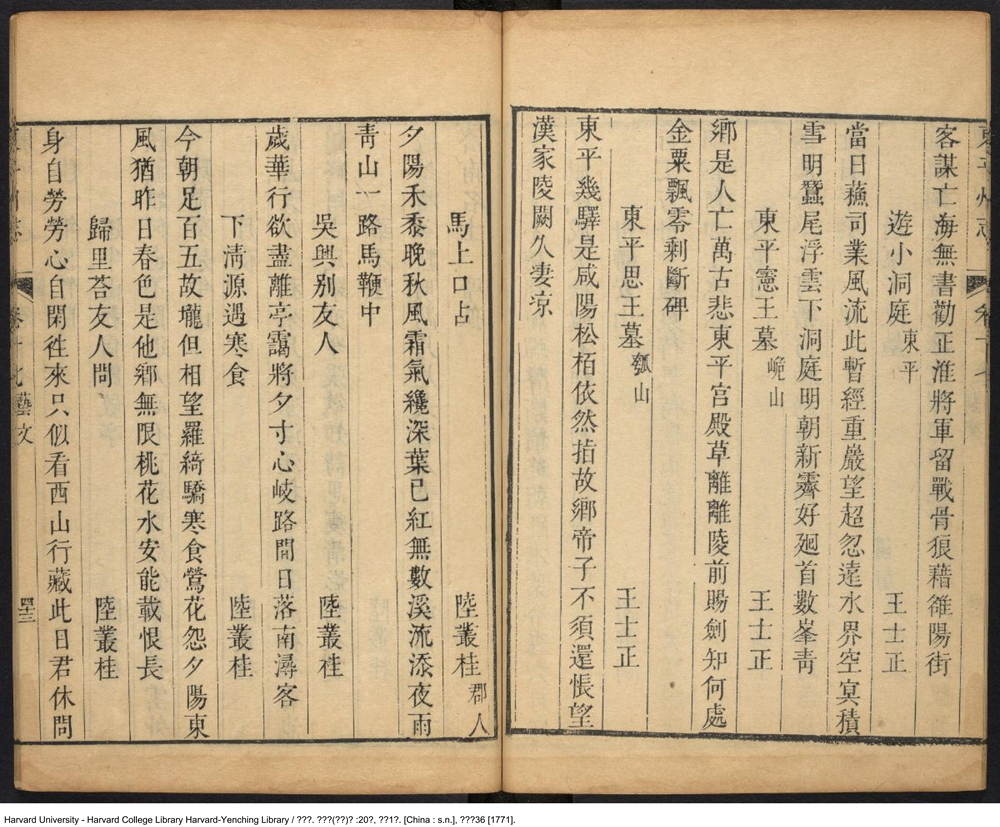 東平州志
客謀亡海無書勸正淮將軍留戰骨狼藉雒陽街
遊小洞庭 東平 王士正
當日蘓司業風流此暫經重巖望超忽遠水界空㝠積
雪明蠶尾浮雲下洞庭明朝新霽好廻首數峯靑
東平憲王墓 山 王士正
鄉是人亡萬古悲東平宫殿草離離陵前賜劍知何處
金粟飄零剩斷碑
東平思王墓 瓠山 王士正
東平幾驛是咸陽松栢依然拍故鄉帝子不須還悵望
漢家陵闕久妻凉
馬上口占 陸叢桂 郡人
夕陽禾黍晚秋風霜氣纔深葉已紅無數溪流添夜雨
靑山一路馬鞭中
吳興别友人 陸叢桂
歲華行欲盡離亭靄將夕寸心岐路間日落南潯客
下淸源遇寒食 陸叢桂
今朝足百五故壠但相望羅綺驕寒食鶯花怨夕陽東
風猶昨日春色是他鄉無限桃花水安能載恨長
歸里荅友人問 陸叢桂
身自勞勞心自閑徃來只似看西山行藏此日君休問
藝文